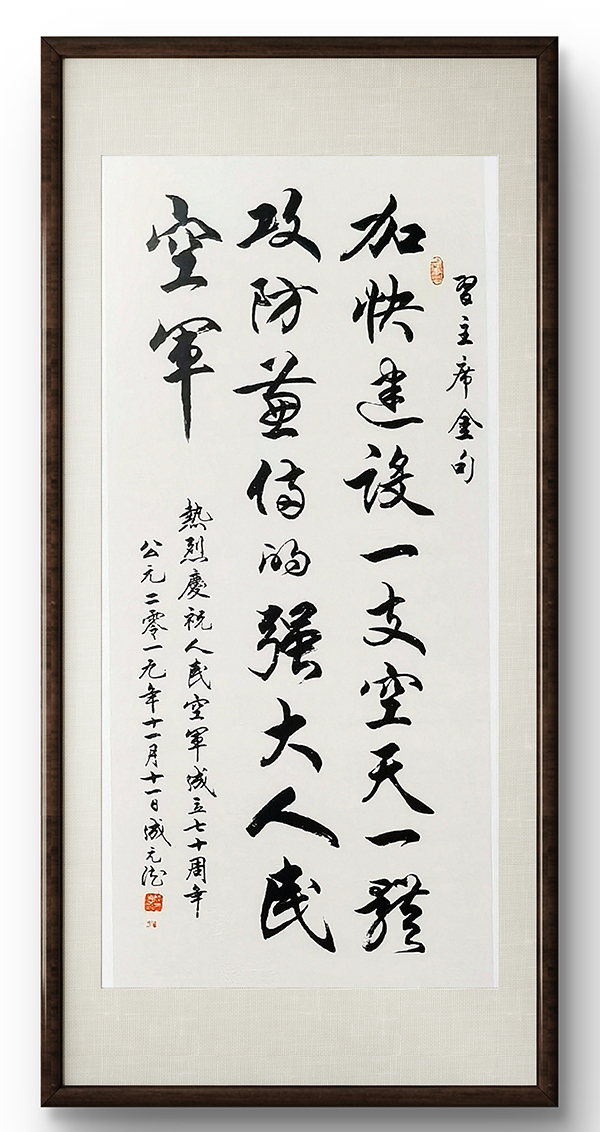 習主席金句
加快建设一支空天一體
攻防兼備的强大人民
空軍
熱烈慶祝人民空軍成立七十周年
公元二零一九年十一月十一日成元浩